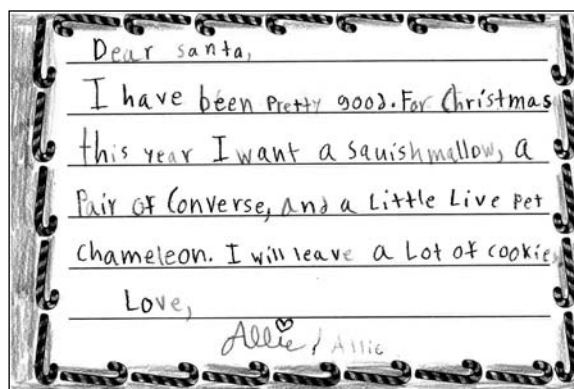 Dear santa,
I have been Pretty good. For Christmas
this year I want a Squishmallow, a
Pair of Converse, and a Little Live Pet
Chameleon. I will leave a Lot of cookies
Love,
Allie / Allie